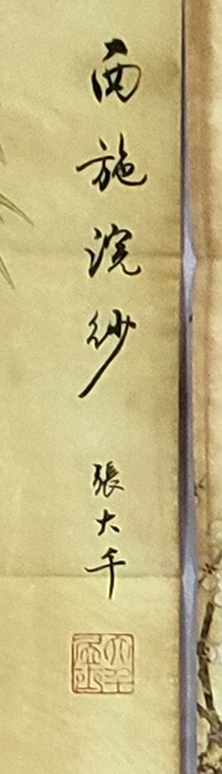 西施浣紗
張大千